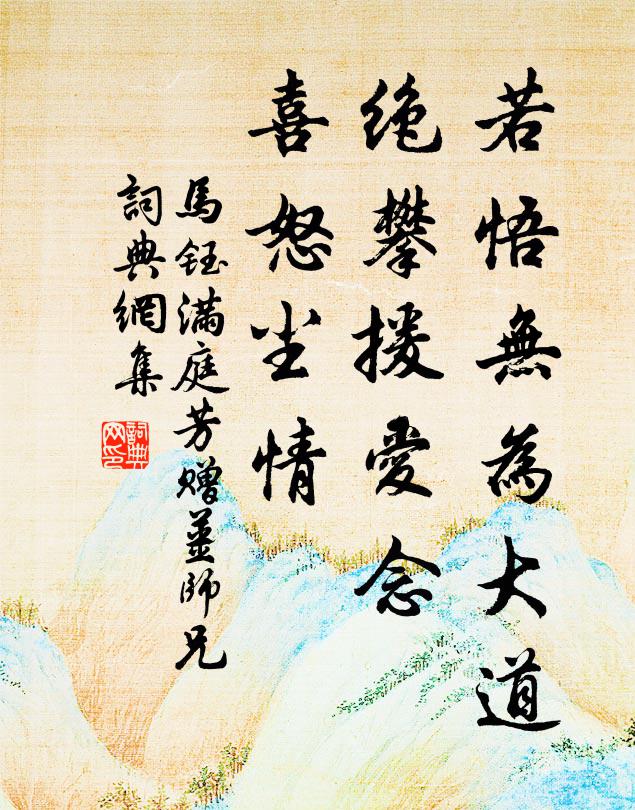 若悟無為大道
绝攀援愛念
喜怒尘情
馬鈺滿庭芳赠薑師兄
詞典網集
詞典网印